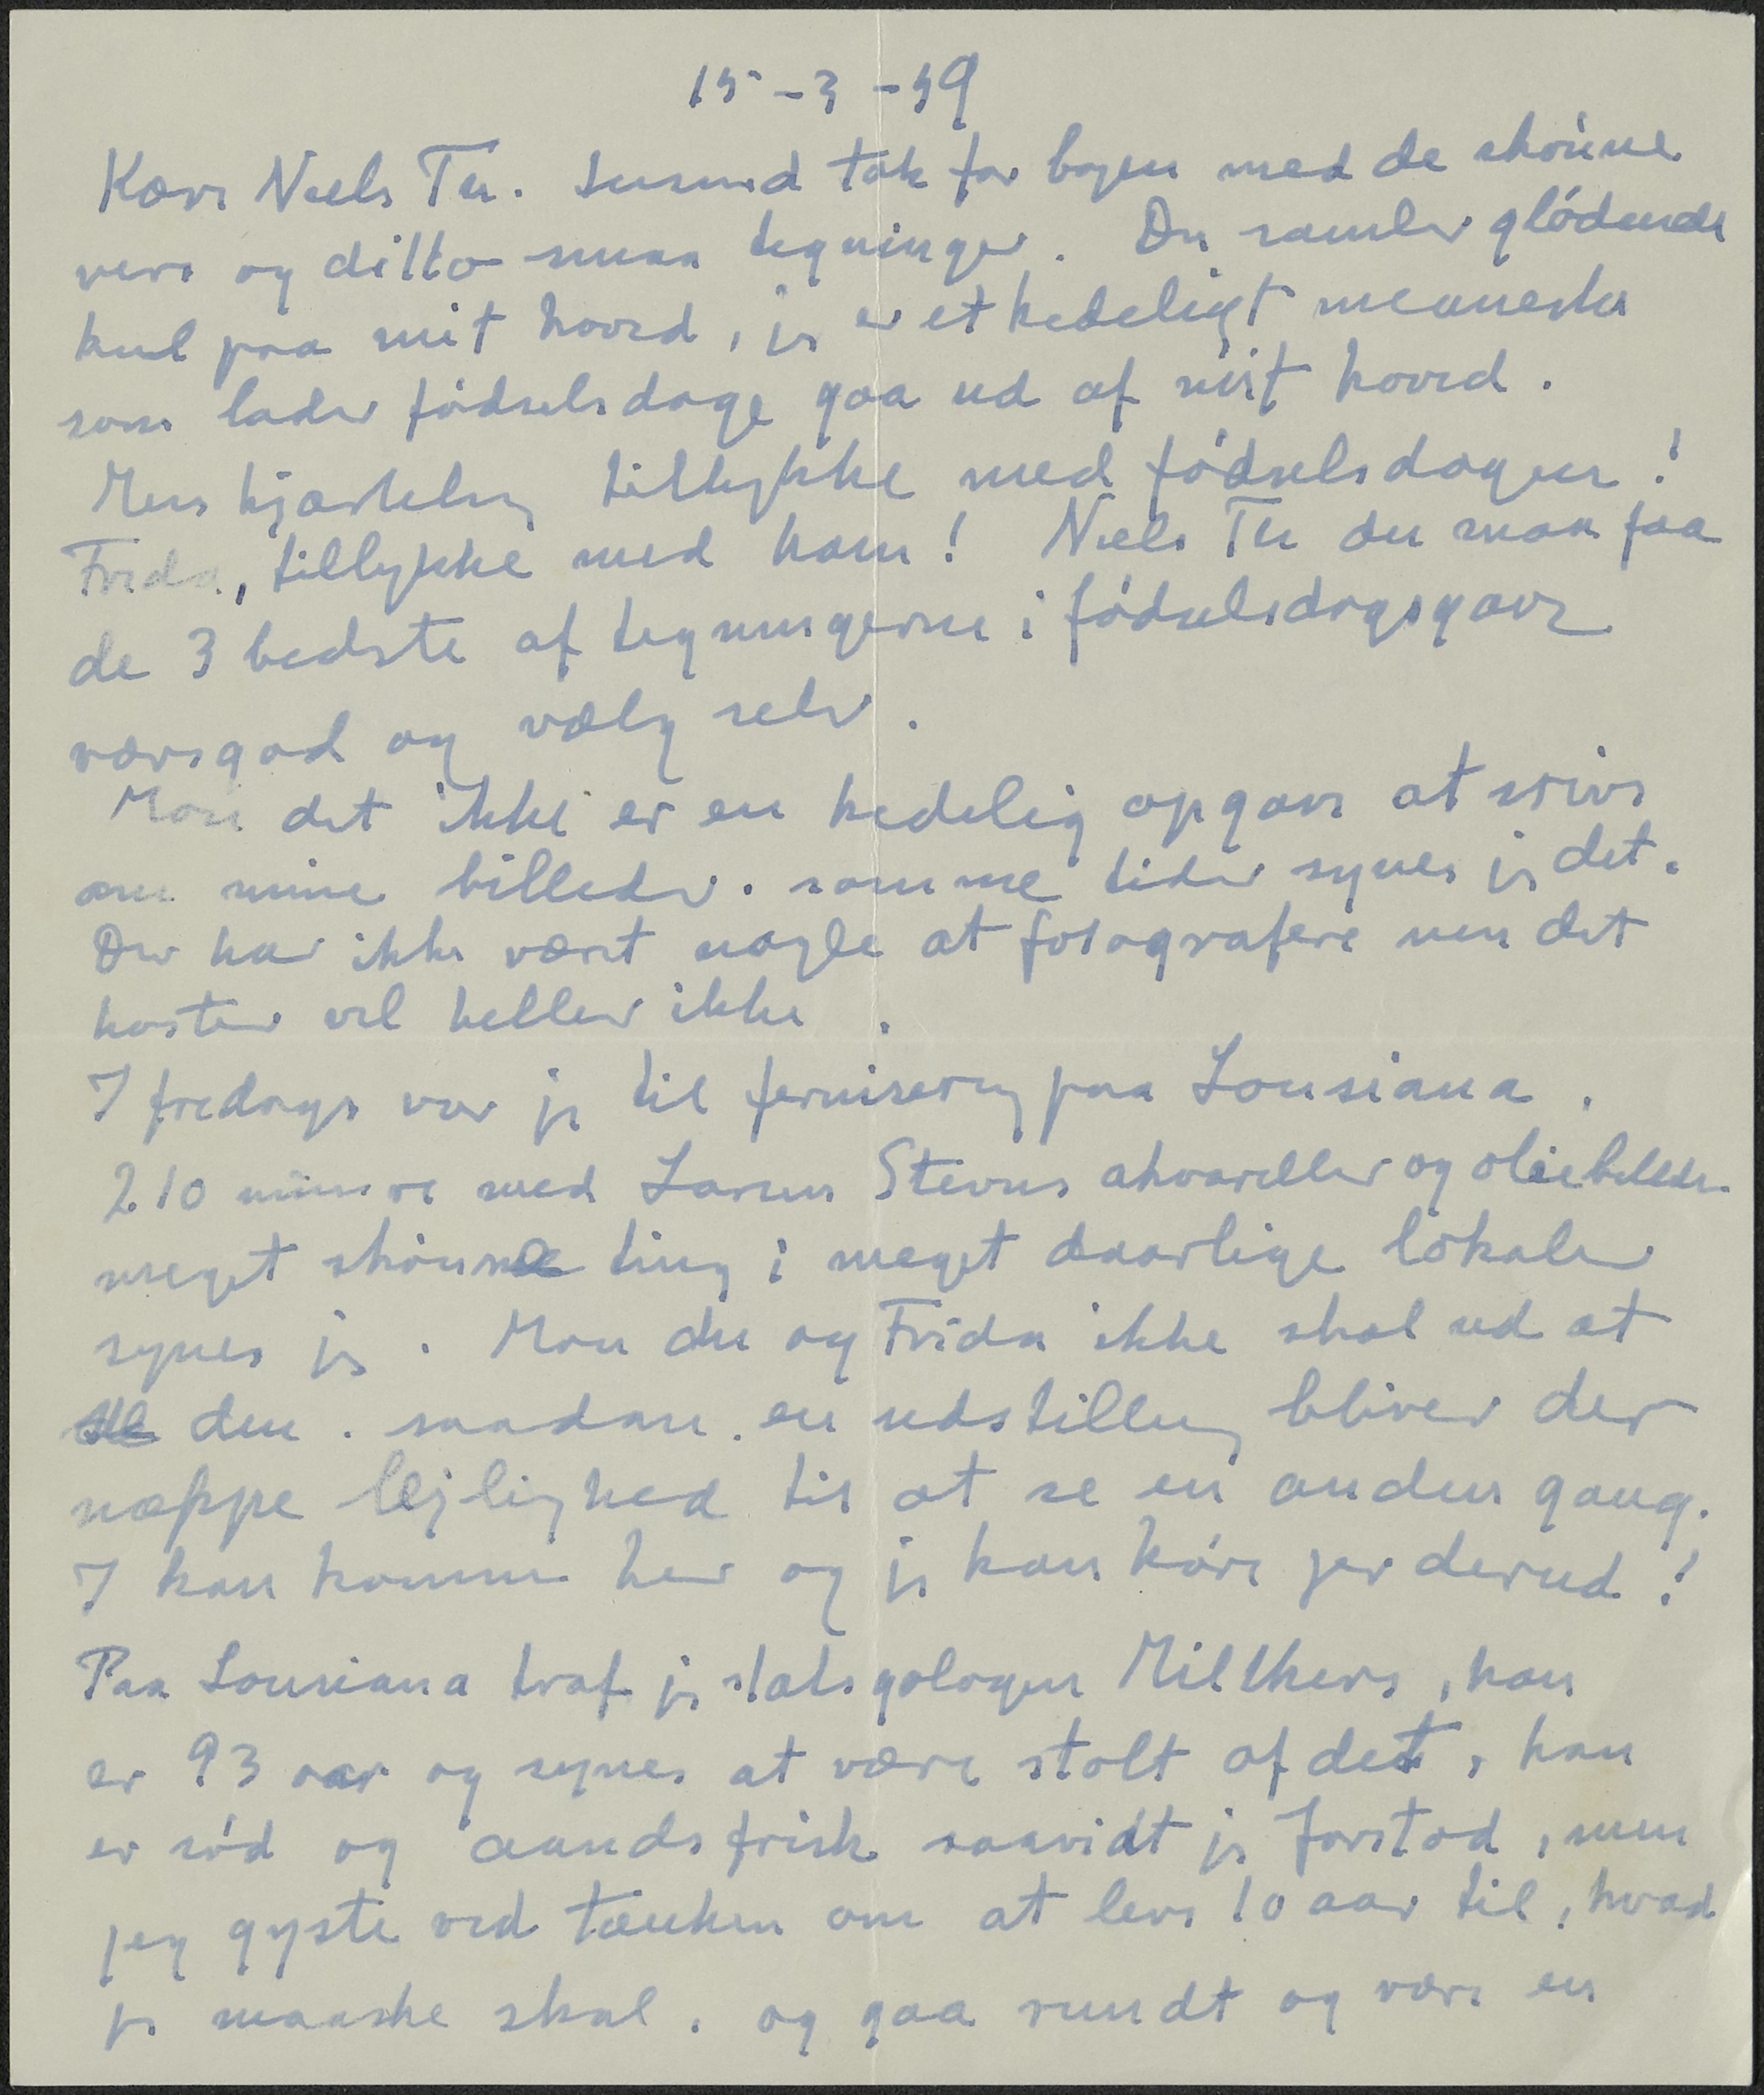 15-3-59
Kære Niels Th. tusind tak for bogen med de skönne
vers og ditto smaa tegninger. Du samler glödende
kul paa mit hoved, jeg er et kedeligt menneske
som lader födselsdage gaa ud af mit hoved.
Men hjærtelig tillykke med födselsdagen!
Frida, tillykke med ham! Niels Th du maa faa
de 3 bedste af tegningerne i födselsdagsgave
værsgod og vælg selv.
Mon det ikke er en kedelig opgave at skrive
om mine billeder. somme tider synes jeg det.
Der har ikke været nogle at fotografere men det
haster vel heller ikke.
I fredags var jeg til fernisering paa Lousiana.
210 numre med Larsen Stevns akvareller og oliebilleder
meget skönne ting i meget daarlige lokaler
synes jeg. Mon du og Frida ikke skal ud at
se den. saadan en udstilling bliver der
næppe lejlighed til at se en anden gang.
I kan komme her og jeg kan köre jer derud!
Paa Lousiana traf jeg statsgologen Milthers, han
er 93 aar og synes at være stolt af det, han
er söd og aandsfrisk saavidt jeg forstod, men
jeg gyste ved tanken om at leve 10 aar til, hvad
jeg maaske skal. og gaa rundt og være en